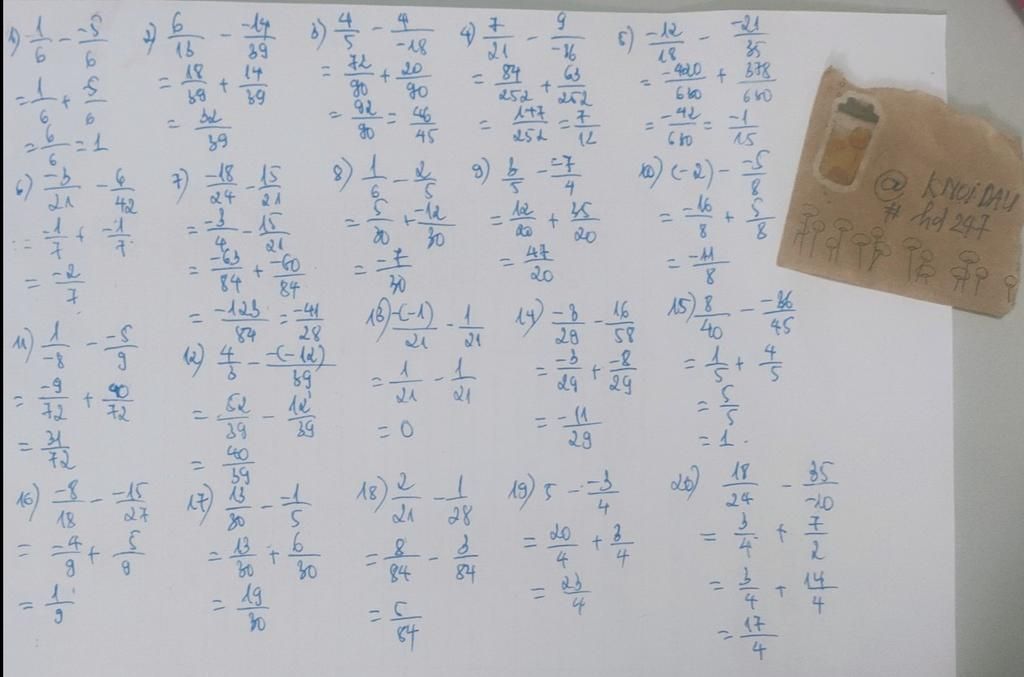 1) 1/6 - -5/6
= 1/6 + 5/6
= 6/6 = 1
2) 6/13 - -14/39
= 18/39 + 14/39
= 32/39
3) 4/5 - 4/-18
= 72/90 + 20/90
= 92/90 = 46/45
4) 7/21 - 9/-36
= 84/252 + 63/252
= 147/252 = 7/12
5) -12/18 - -21/35
= -420/630 + 378/630
= -42/630 = -1/15
6) -3/21 - 6/42
= -1/7 + -1/7
= -2/7
7) -18/24 - 15/21
= -3/4 - 15/21
= -63/84 + -60/84
= -123/84 = -41/28
8) 1/6 - 2/5
= 5/30 + -12/30
= -7/30
9) 3/5 - -7/4
= 12/20 + 35/20
= 47/20
10) (-2) - -5/8
= -16/8 + 5/8
= -11/8
@ KNOiDAU
# hd247
11) 1/-8 - -5/9
= -9/72 + 40/72
= 31/72
12) 4/3 - -(-12)/39
= 52/39 - 12/39
= 40/39
13) -(-1)/21 - 1/21
= 1/21 - 1/21
= 0
14) -3/29 - 16/58
= -3/29 + -8/29
= -11/29
15) 8/40 - -36/45
= 1/5 + 4/5
= 5/5
= 1
16) -8/18 - -15/27
= -4/9 + 5/9
= 1/9
17) 13/30 - -1/5
= 13/30 + 6/30
= 19/30
18) 2/21 - 1/28
= 8/84 - 3/84
= 5/84
19) 5 - -3/4
= 20/4 + 3/4
= 23/4
20) 18/24 - 35/-10
= 3/4 + 7/2
= 3/4 + 14/4
= 17/4